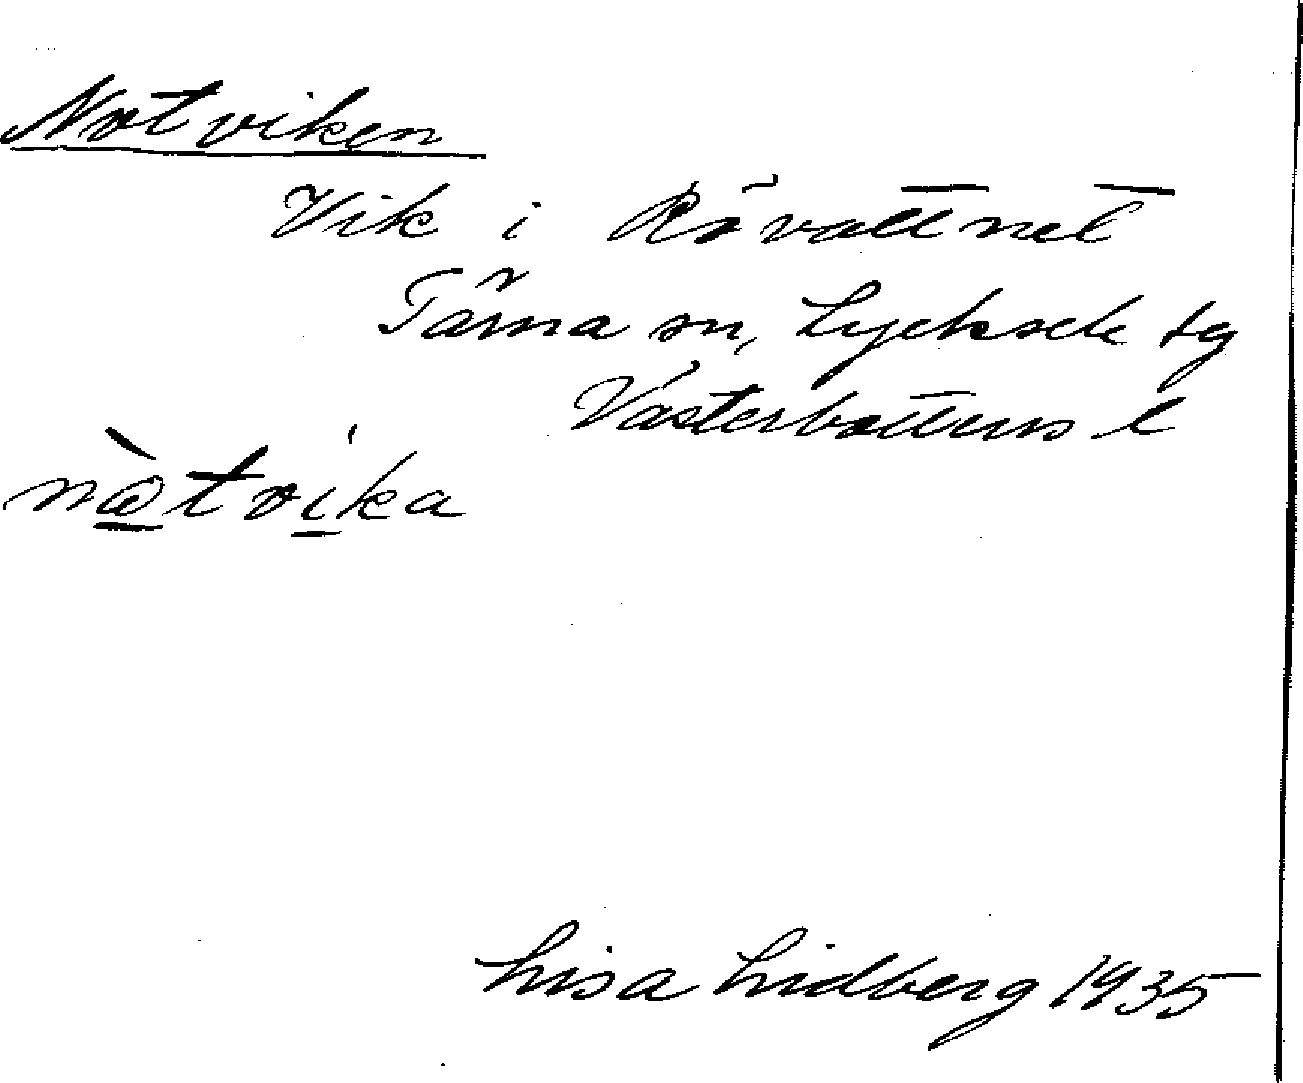 Notviken
Vik i Rövattnet
Tärna sn, Lycksele tg
Västerbottens l
nὼtvika
Lisa Lidberg 1935